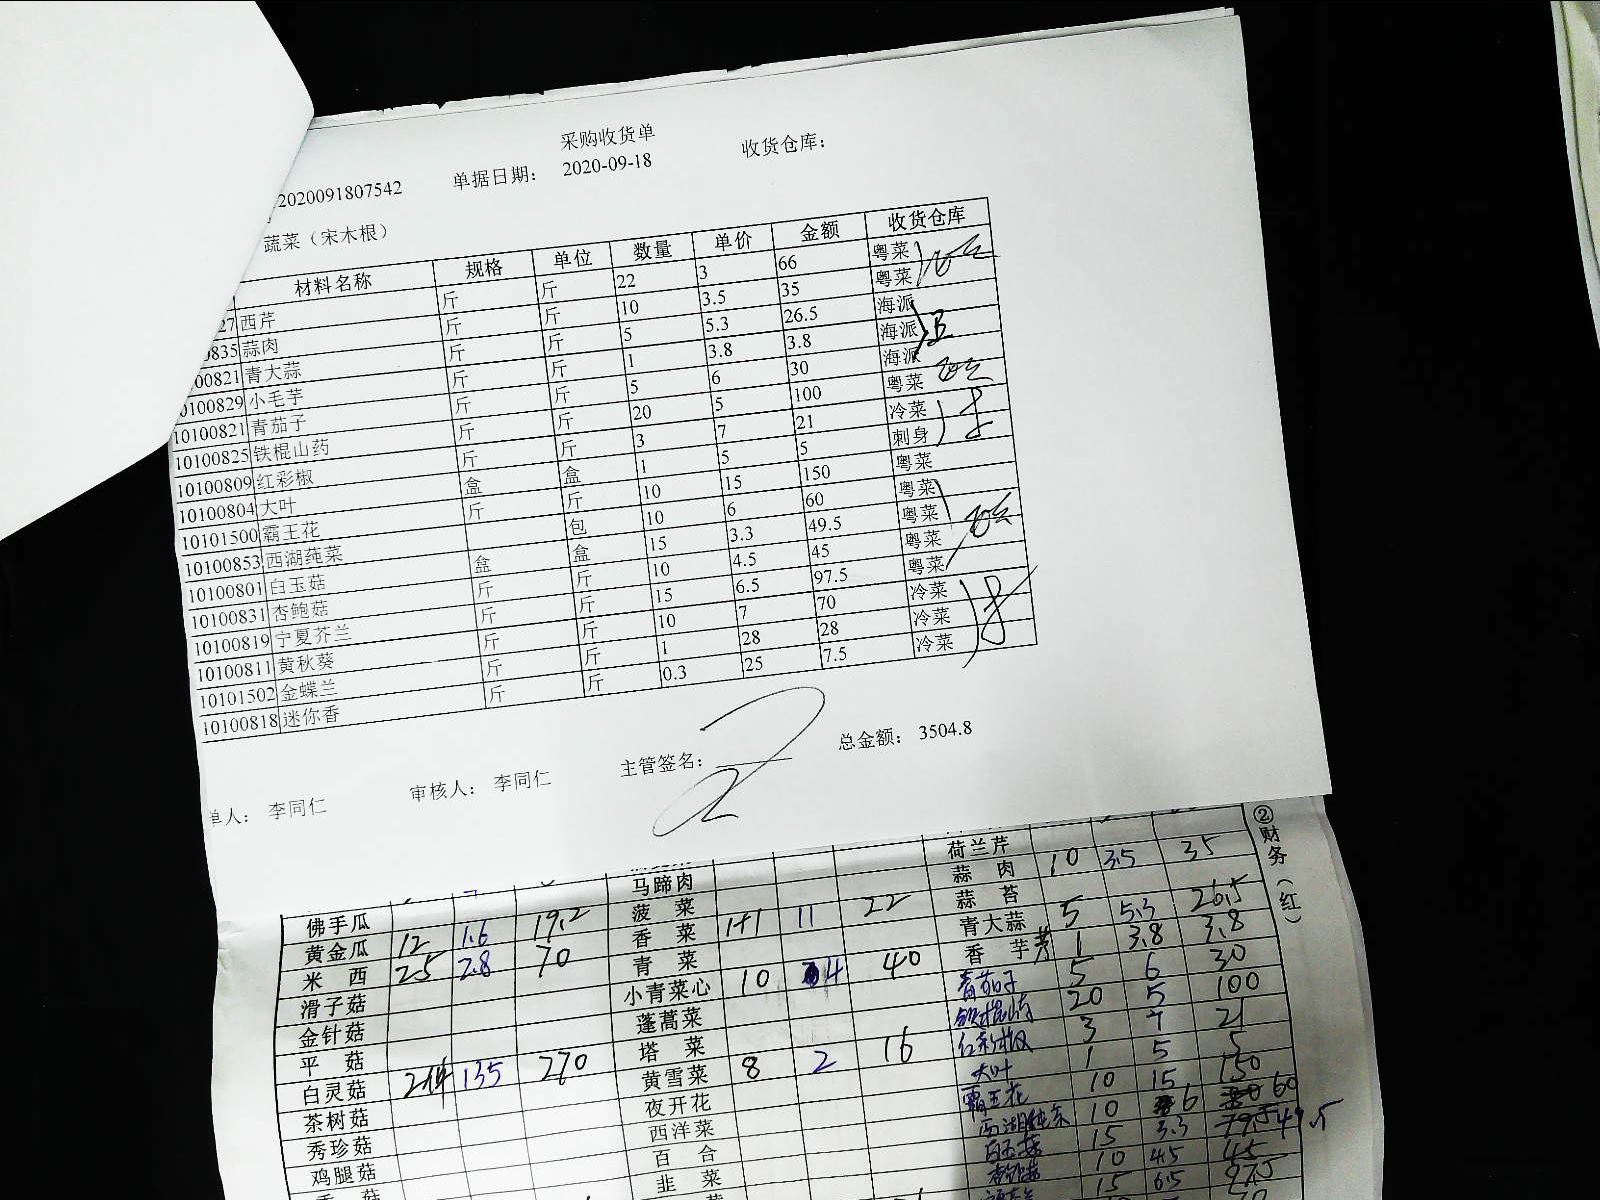 采购收货单
2020091807542 单据日期： 2020-09-18 收货仓库：
蔬菜（宋木根）
材料名称 规格 单位 数量 单价 金额 收货仓库
27 西芹 斤 斤 22 3 66 粤菜
0835 蒜肉 斤 斤 10 3.5 35 粤菜
00821 青大蒜 斤 斤 5 5.3 26.5 海派
0100829 小毛芋 斤 斤 1 3.8 3.8 海派
10100821 青茄子 斤 斤 5 6 30 海派
10100825 铁棍山药 斤 斤 20 5 100 粤菜
10100809 红彩椒 斤 斤 3 7 21 冷菜
10100804 大叶 盒 盒 1 5 5 刺身
10101500 霸王花 斤 斤 10 15 150 粤菜
10100853 西湖莼菜 包 10 6 60 粤菜
10100801 白玉菇 盒 盒 15 3.3 49.5 粤菜
10100831 杏鲍菇 斤 斤 10 4.5 45 粤菜
10100819 宁夏芥兰 斤 斤 15 6.5 97.5 粤菜
10100811 黄秋葵 斤 斤 10 7 70 冷菜
10101502 金蝶兰 斤 斤 1 28 28 冷菜
10100818 迷你香 斤 斤 0.3 25 7.5 冷菜
单人： 李同仁 审核人： 李同仁 主管签名： 总金额： 3504.8
②财务（红）
荷兰芹
马蹄肉 蒜肉 10 3.5 35
佛手瓜 菠菜 蒜苔
黄金瓜 12 1.6 19.2 香菜 1+1 11 22 青大蒜 5 5.3 26.5
米西 25 2.8 70 青菜 香芋 1 3.8 3.8
滑子菇 小青菜心 10 4 40 青茄子 5 6 30
金针菇 蓬蒿菜 20 5 100
平菇 塔菜 红彩椒 3 7 21
白灵菇 135 270 黄雪菜 8 2 16 大叶 1 5 5
茶树菇 夜开花 霸王花 10 15 150
秀珍菇 西洋菜 西湖莼菜 10 6 60
鸡腿菇 百合 白玉菇 15 3.3 49.5
韭菜 杏鲍菇 10 4.5 45
15 6.5 97.5